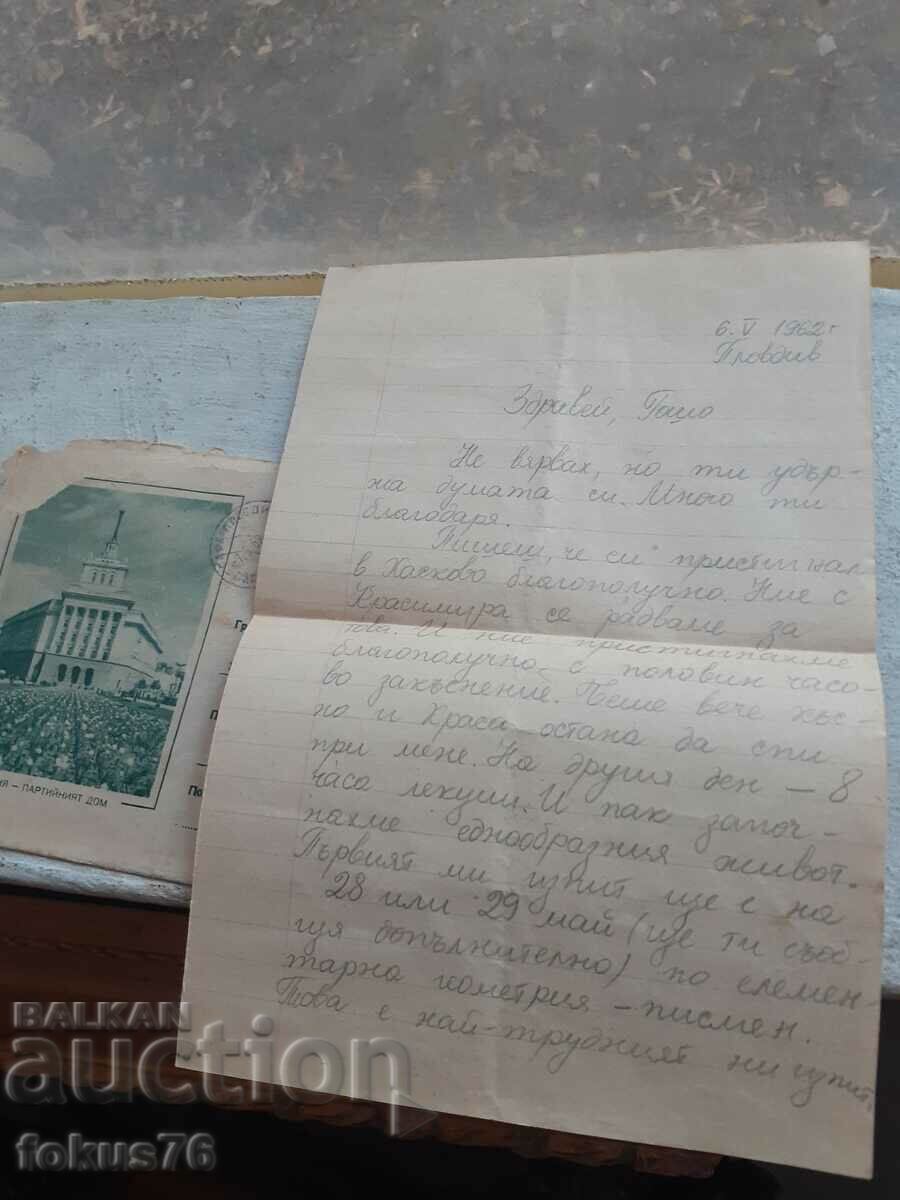 6. V 1962 г
Пловдив
Здравей, Гошо
Не вярвах, но ти удър-
жа думата си. Много ти
благодаря.
Пишеш, че си пристигнал
в Хасково благополучно. Ние с
Красимира се радваме за
това. И ние пристигнахме
благополучно с половин часо-
во закъснение. Беше вече къс-
но и Краси остана да спи
при мене. На другия ден – 8
часа лекции. И пак започ-
нахме еднообразния живот.
Първият ми изпит ще е на
28 или 29 май (ще ти съоб-
щя допълнително) по елемен-
тарна геометрия – писмен.
Това е най-трудният ни изпит,
– ПАРТИЙНИЯТ ДОМ
BALKAN
auction
fokus76